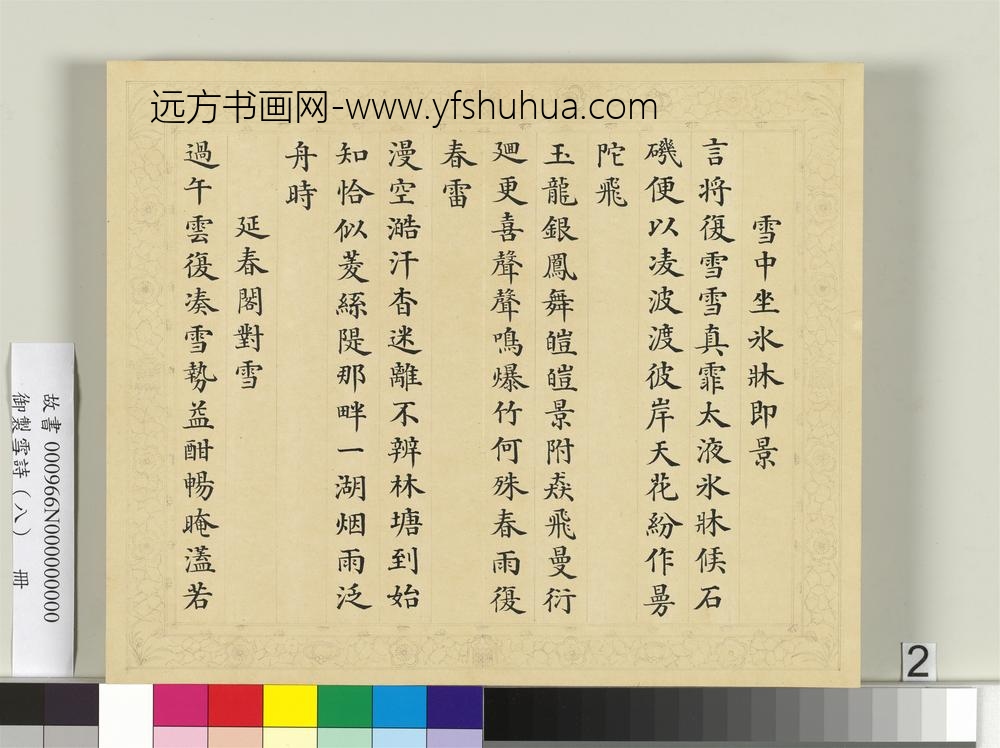 远方书画网-www.yfshuhua.com
雪中坐氷牀即景
言将復雪雪真霏太液氷牀俟石
磯便以凌波渡彼岸天花紛作曼
陀飛
玉龍銀鳳舞皚皚景附猋飛曼衍
廻更喜聲聲鳴爆竹何殊春雨復
春雷
漫空澔汗杳迷離不辨林塘到始
知恰似菱絲隄那畔一湖烟雨泛
舟時
延春閣對雪
過午雲復凑雪勢益酣暢晻濭若
故書 000966N000000000
御製雪詩（八） 冊
2